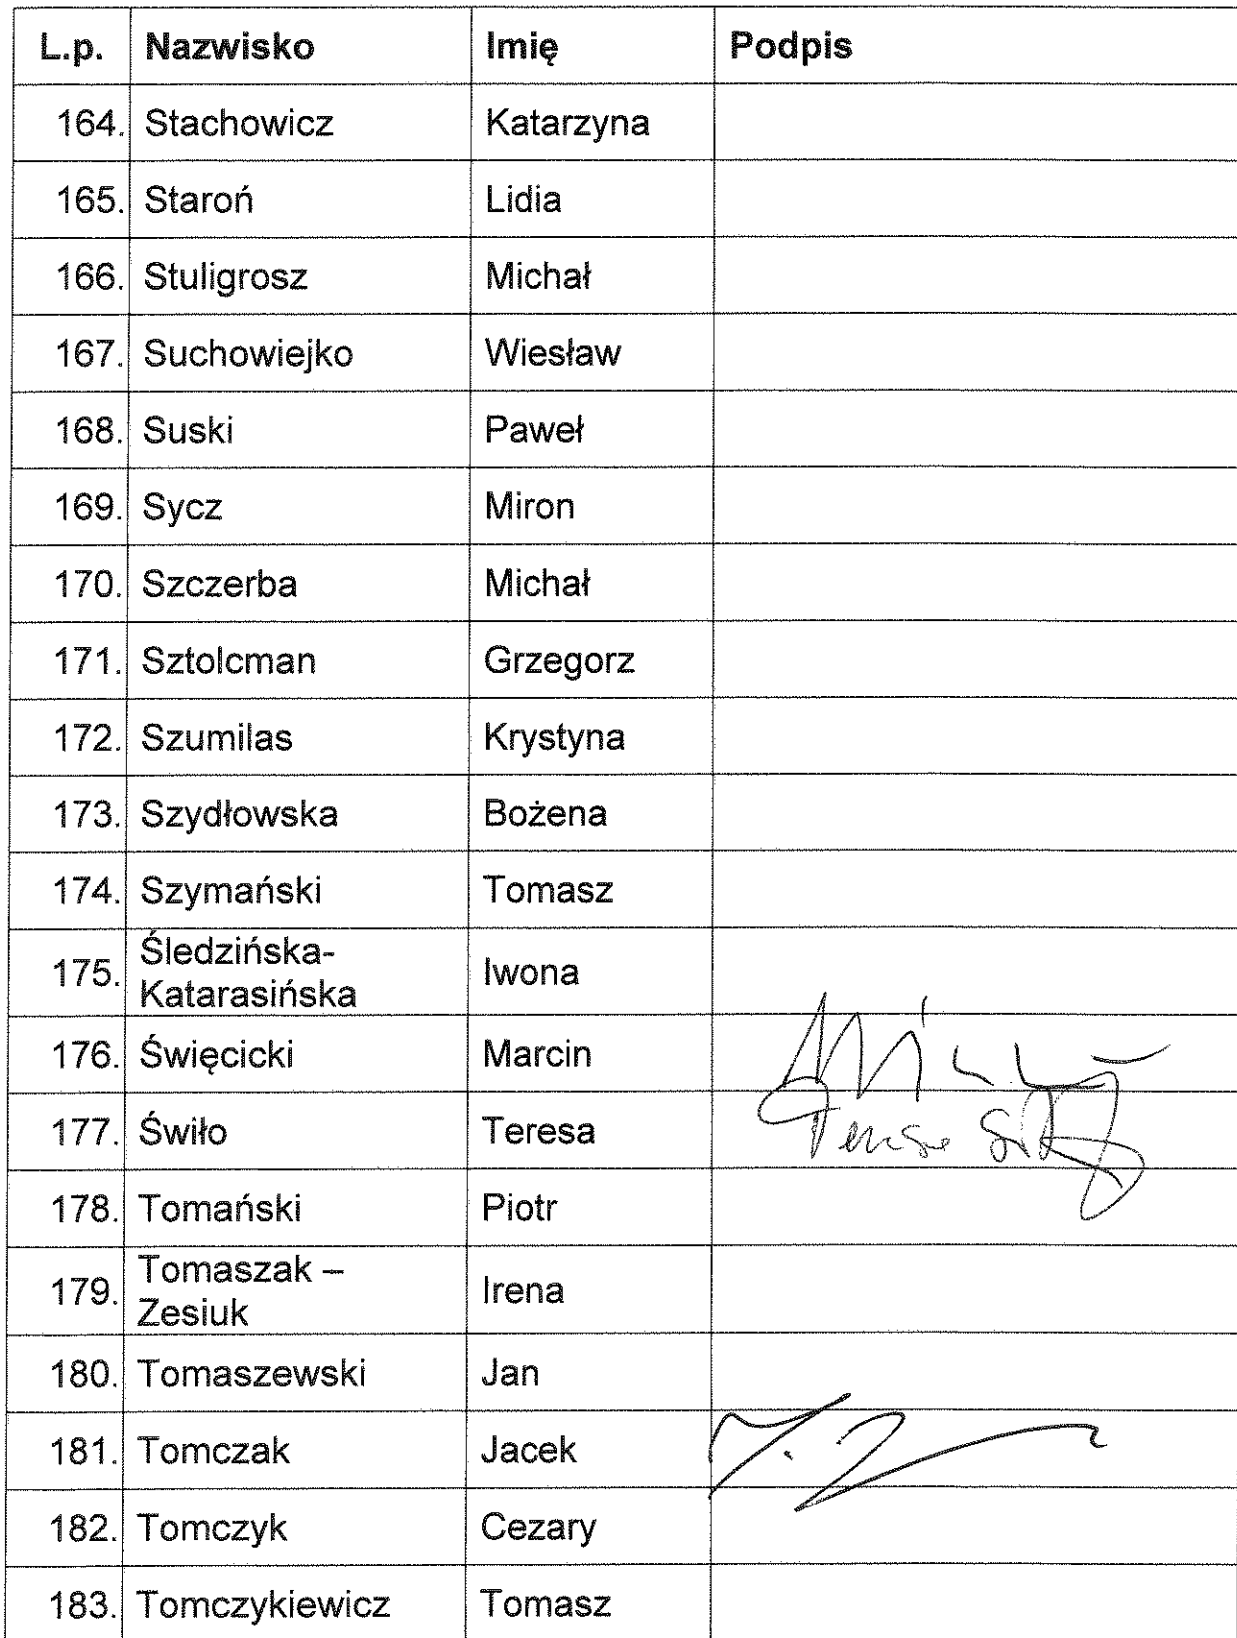 L.p. Nazwisko Imię Podpis
164. Stachowicz Katarzyna
165. Staroń Lidia
166. Stuligrosz Michał
167. Suchowiejko Wiesław
168. Suski Paweł
169. Sycz Miron
170. Szczerba Michał
171. Sztolcman Grzegorz
172. Szumilas Krystyna
173. Szydłowska Bożena
174. Szymański Tomasz
175. Śledzińska-
Katarasińska Iwona
176. Święcicki Marcin
177. Świło Teresa
178. Tomański Piotr
179. Tomaszak –
Zesiuk Irena
180. Tomaszewski Jan
181. Tomczak Jacek
182. Tomczyk Cezary
183. Tomczykiewicz Tomasz